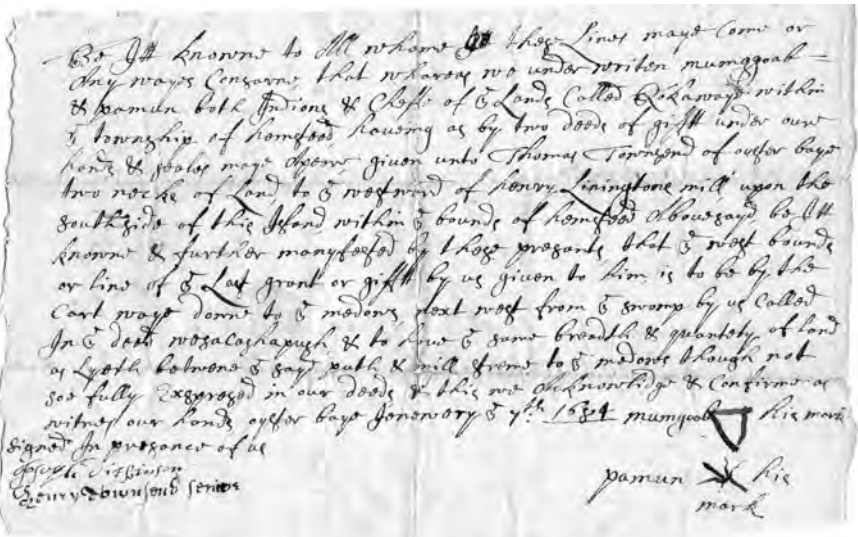 Be Itt knowne to All whome these Lines maye Come or
Any wayes Consarne that whareas we under writen mumgoab =
& pamun both Indions & Chefe of ye Lands Called Rokawaye within
ye township of hemsteed haveing as by two deeds of gifft under oure
hands & seales maye Apere given unto Thomas Townsend of oyster baye
two necks of Land to ye westward of henry Liningtons mill upon the
southside of this Island within ye bounds of hemsteed Abovesayd be Itt
knowne & further manyfested by these presants that ye west bounds
or line of ye Last grant or gifft by us given to him is to be by the
Cart waye downe to ye medows next west from ye swomp by us Called
In ye deed & to have ye same breadth & quantety of land
as Lyeth betwene ye sayd path & mill streme to ye medows though not
soe fully Expresed in our deeds & this we Acknowlidge & Confirme as
witnes our hands oyster baye Jenewery ye 7th 1684 mumgoab his mark
signed In presance of us
Joseph Dickinson
henry townsend senior
pamun his
mark